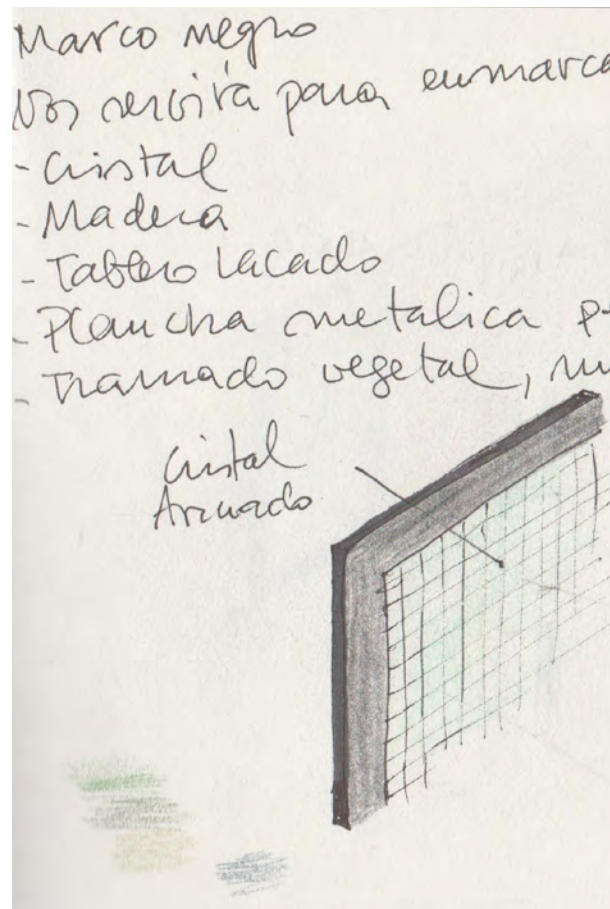 Marco negro
Nos servirá para enmarca
- Cristal
- Madera
- Tablero Lacado
- Plancha metalica p
- Tramado vegetal, mi
Cristal
Armado